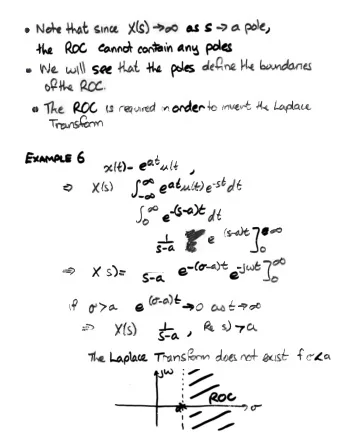 • Note that since X(s) → ∞ as s → a pole,
the ROC cannot contain any poles
• We will see that the poles define the boundaries
of the ROC.
• The ROC is required in order to invert the Laplace
Transform
EXAMPLE 6
x(t)- e^{at}u(t) ,
⇒ X(s) ∫_{-∞}^{∞} e^{at}u(t) e^{-st} dt
∫_0^∞ e^{-(s-a)t} dt
1/(s-a) e^{(s-a)t} ]_0^∞
⇒ X s)= 1/(s-a) e^{-(σ-a)t} e^{-jωt} ]_0^∞
if σ>a e^{(σ-a)t} → 0 as t → ∞
⇒ X(s) 1/(s-a) , Re s) > a
The Laplace Transform does not exist if σ<a
jω
ROC
a σ